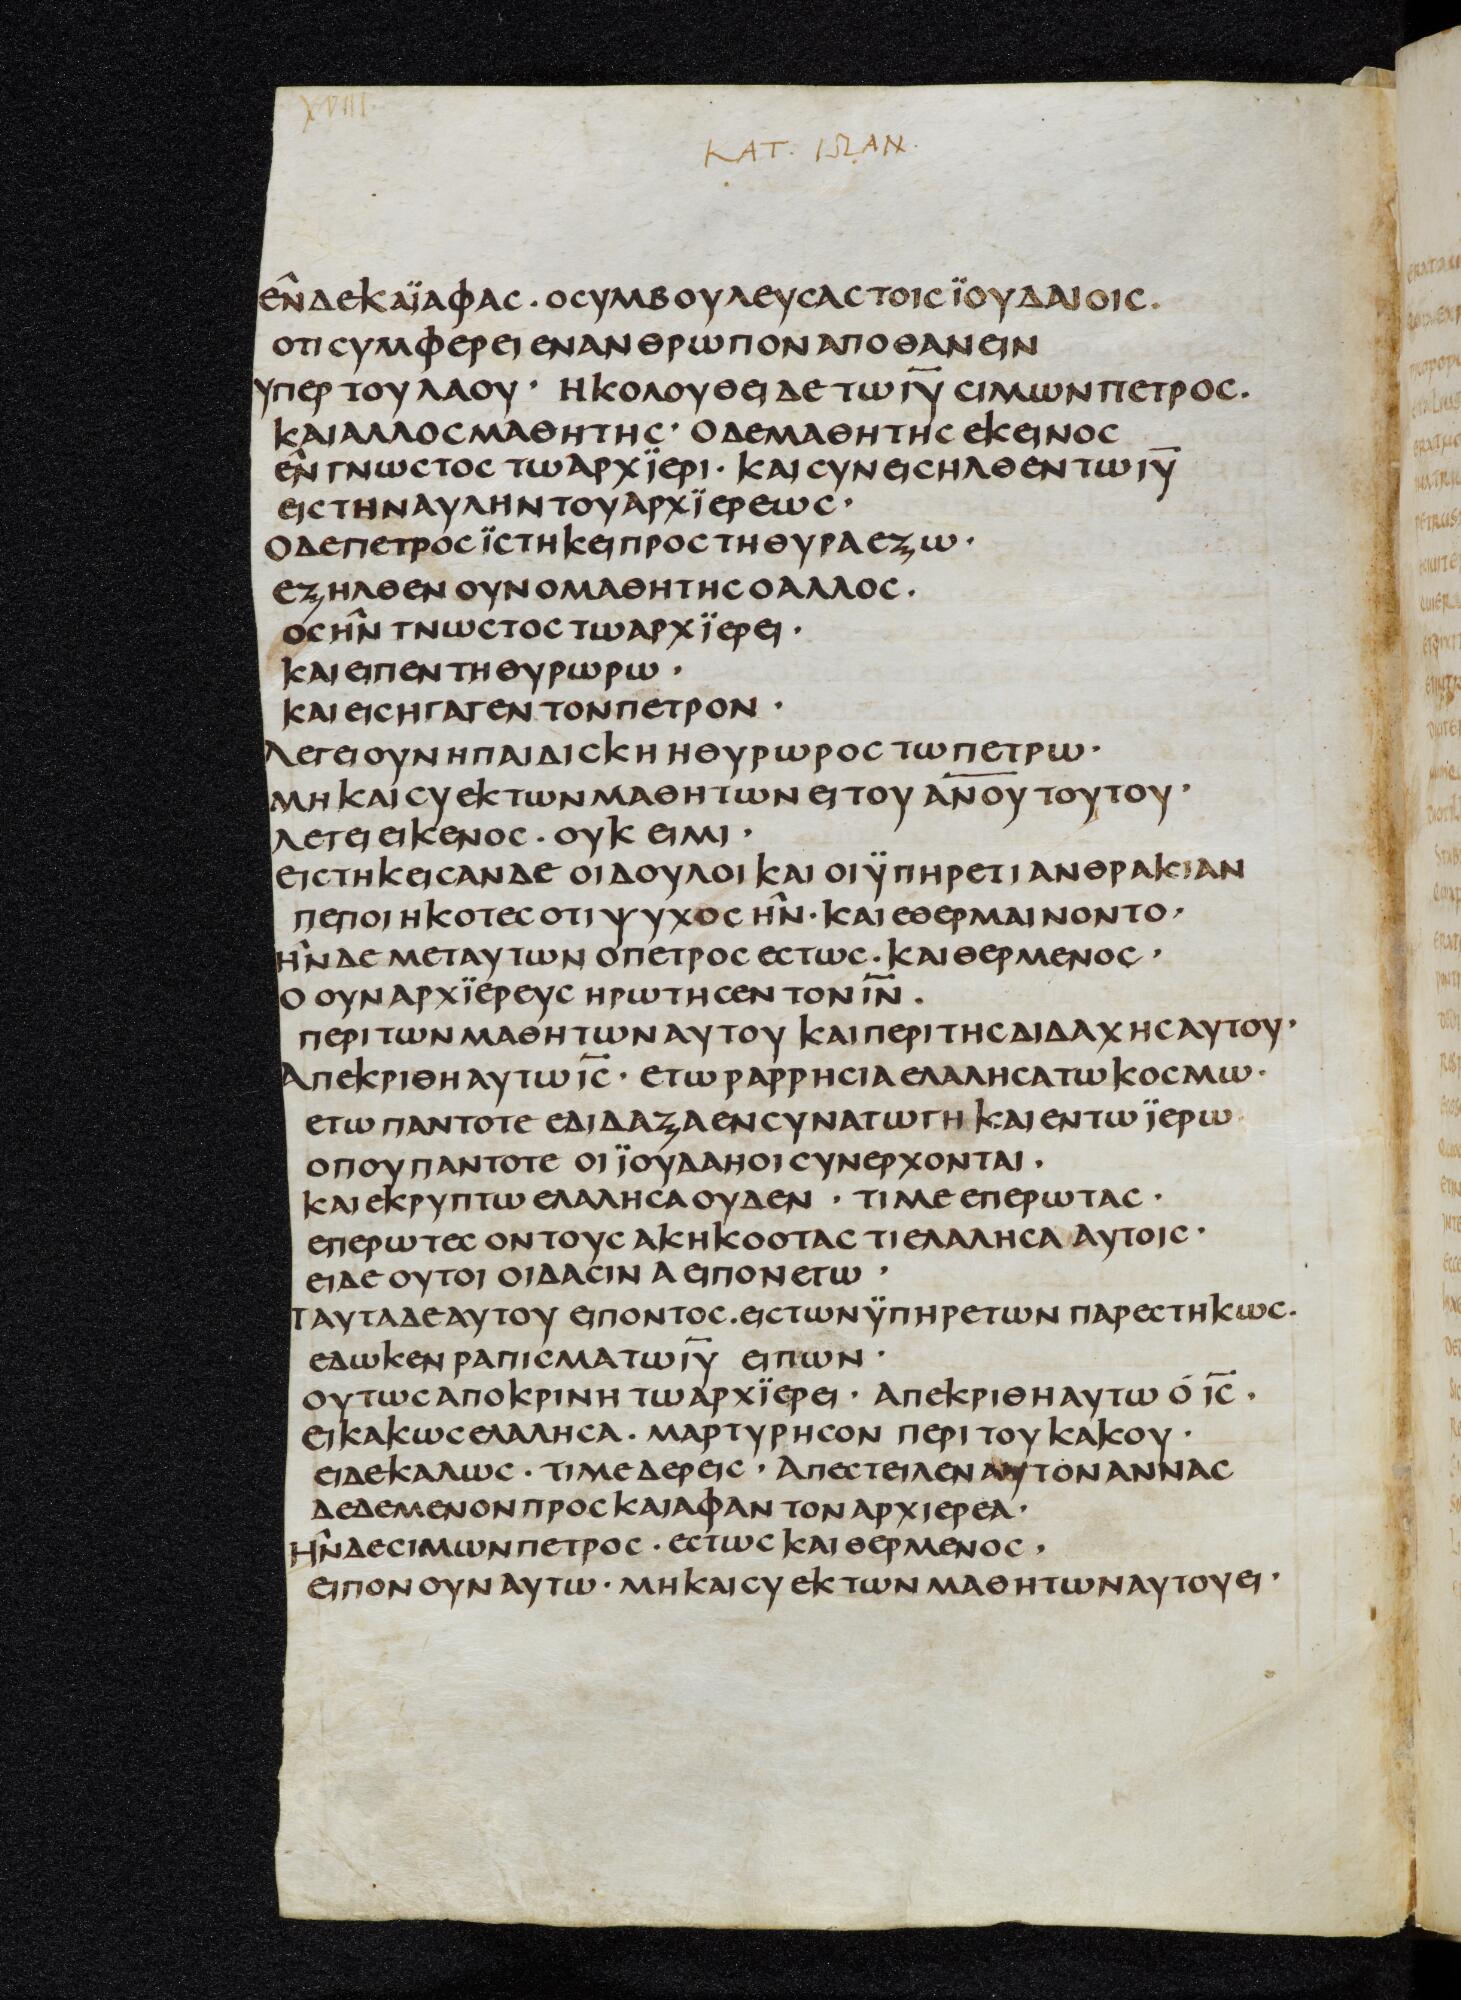 XVIII.
ΚΑΤ. ΙΩΑΝ.
ε̂νδεκαϊαφας · οσυμβουλευσαςτοιςϊουδαιοις.
οτισυμφερειενανθρωποναποθανειν
υπερτουλαου · Ηκολουθειδετωιυ̅ σιμωνπετρος.
καιαλλοςμαθητης · Οδεμαθητηςεκεινος
ε̂νγνωστος τωαρχϊερι · καισυνεισηλθεντωιυ̅
ειςτηναυληντουαρχϊερεως ·
Οδεπετροςϊστηκειπροςτηθυραεξω ·
εξηλθενουνομαθητηςοαλλος.
όςη̂ν τνωστοςτωαρχϊερει ·
καιειπεντηθυρωρω ·
καιεισηγαγεντονπετρον ·
Λεγειουνηπαιδισκηηθυρωροςτωπετρω ·
μηκαισυεκτωνμαθητωνειτουαν̅ο̅υτουτου ·
λετειεικενος · ουκειμι ·
ειστηκεισανδε οιδουλοικαιοιϋπηρετιανθρακιαν
πεποιηκοτεςοτιψυχοςη̂ν · καιεθερμαινοντο ·
η̂νδεμεταυτωνοπετροςεστως · καιθερμενος ·
Οουναρχϊέρευς ηρωτησεντονιν̅.
περιτωνμαθητωναυτουκαιπεριτηςδιδαχηςαυτου ·
Απεκριθηαυτωις̅ · ετωραρρησιαελαλησατωκοσμω ·
ετωπαντοτε εδιδαξαενσυνατωγηκαιεντωϊερω
οπουπαντοτε οιϊουδαηοισυνερχονται ·
καιεκρυπτωελαλησαουδεν · τιμεεπερωτας ·
επερωτεςοντουςακηκοοταςτιελαλησααυτοις ·
ειδεουτοιοιδασιναειπονετω ·
Ταυταδεαυτουειποντος · ειςτωνϋπηρετωνπαρεστηκως ·
εδωκενραπισματωιυ̅ ειπων ·
ουτωςαποκρινητωαρχϊερει · Απεκριθηαυτωόις̅ ·
εικακωςελαλησα · μαρτυρησονπεριτουκακου ·
ειδεκαλως · τιμεδερεις · Απεστειλεναυτονаннας
δεδεμενονπροςκαιαφαντοναρχιερεα ·
Η̂νδεσιμωνπετρος · εστωςκαιθερμενος ·
ειπονουναυτω · μηκαισυεκτωνμαθητωναυτουει ·